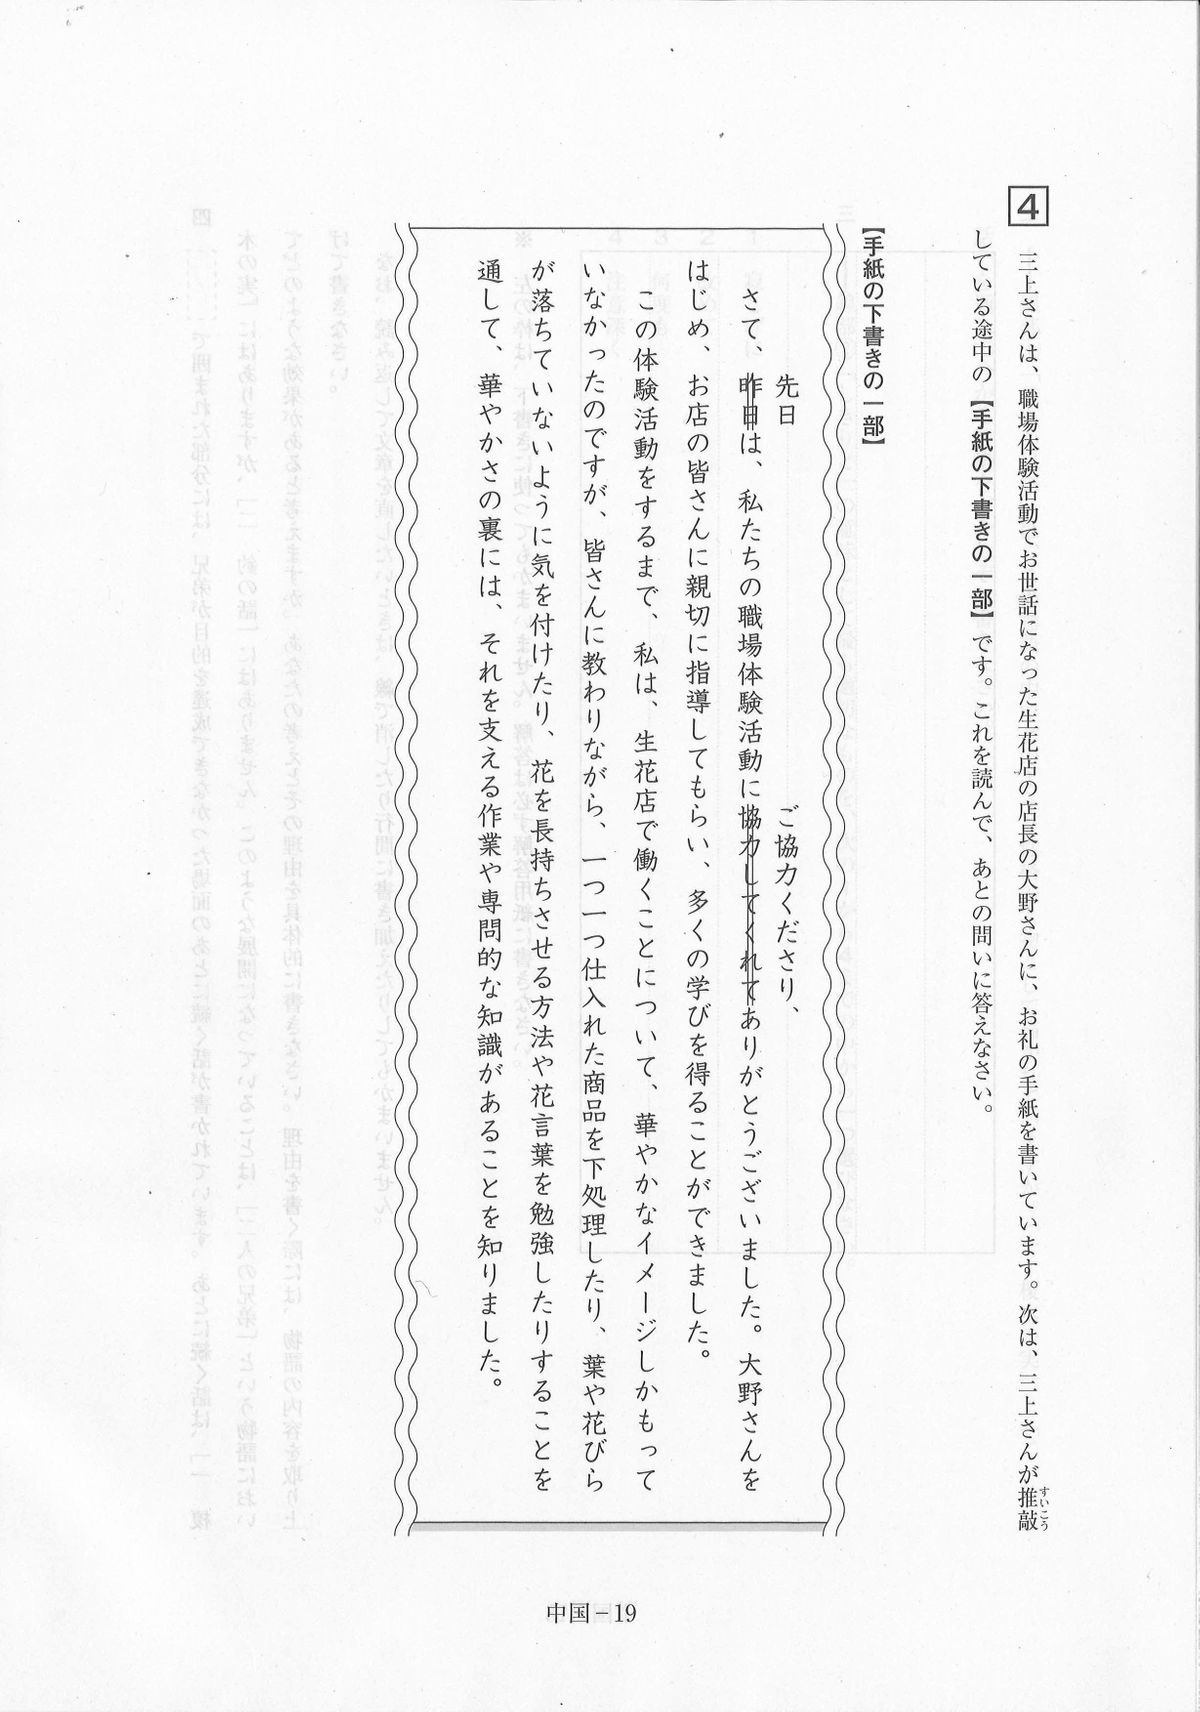 4
三上さんは、職場体験活動でお世話になった生花店の店長の大野さんに、お礼の手紙を書いています。次は、三上さんが推敲
すいこう
している途中の【手紙の下書きの一部】です。これを読んで、あとの問いに答えなさい。
【手紙の下書きの一部】
先日
ご協力くださり、
さて、昨日は、私たちの職場体験活動に協力してくれてありがとうございました。大野さんを
はじめ、お店の皆さんに親切に指導してもらい、多くの学びを得ることができました。
この体験活動をするまで、私は、生花店で働くことについて、華やかなイメージしかもって
いなかったのですが、皆さんに教わりながら、一つ一つ仕入れた商品を下処理したり、葉や花びら
が落ちていないように気を付けたり、花を長持ちさせる方法や花言葉を勉強したりすることを
通して、華やかさの裏には、それを支える作業や専門的な知識があることを知りました。
中国－19